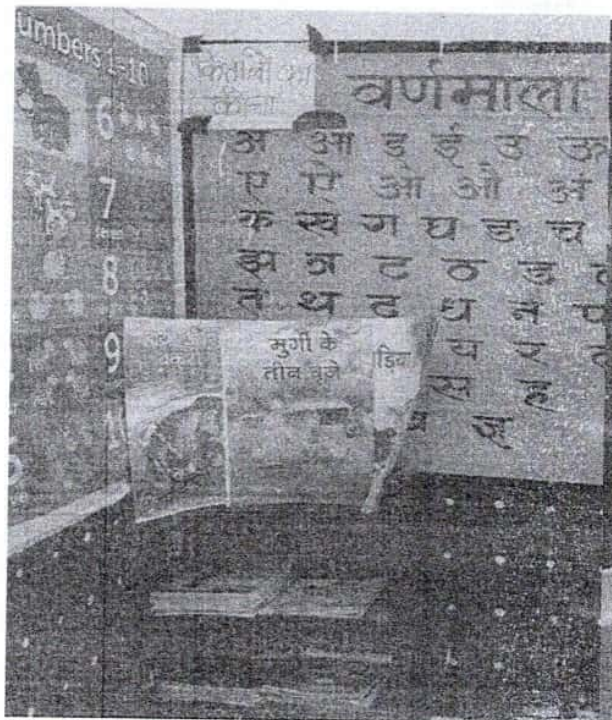 umbers 1-10
6
7
8
9
किताबों का
कोना
वर्णमाला
अ आ इ ई उ ऊ
ए ऐ ओ औ अं
क ख ग घ ङ च
झ ञ ट ठ ड
त थ द ध न प
य र
ज्ञ
मुर्गी के
तीन चूजे